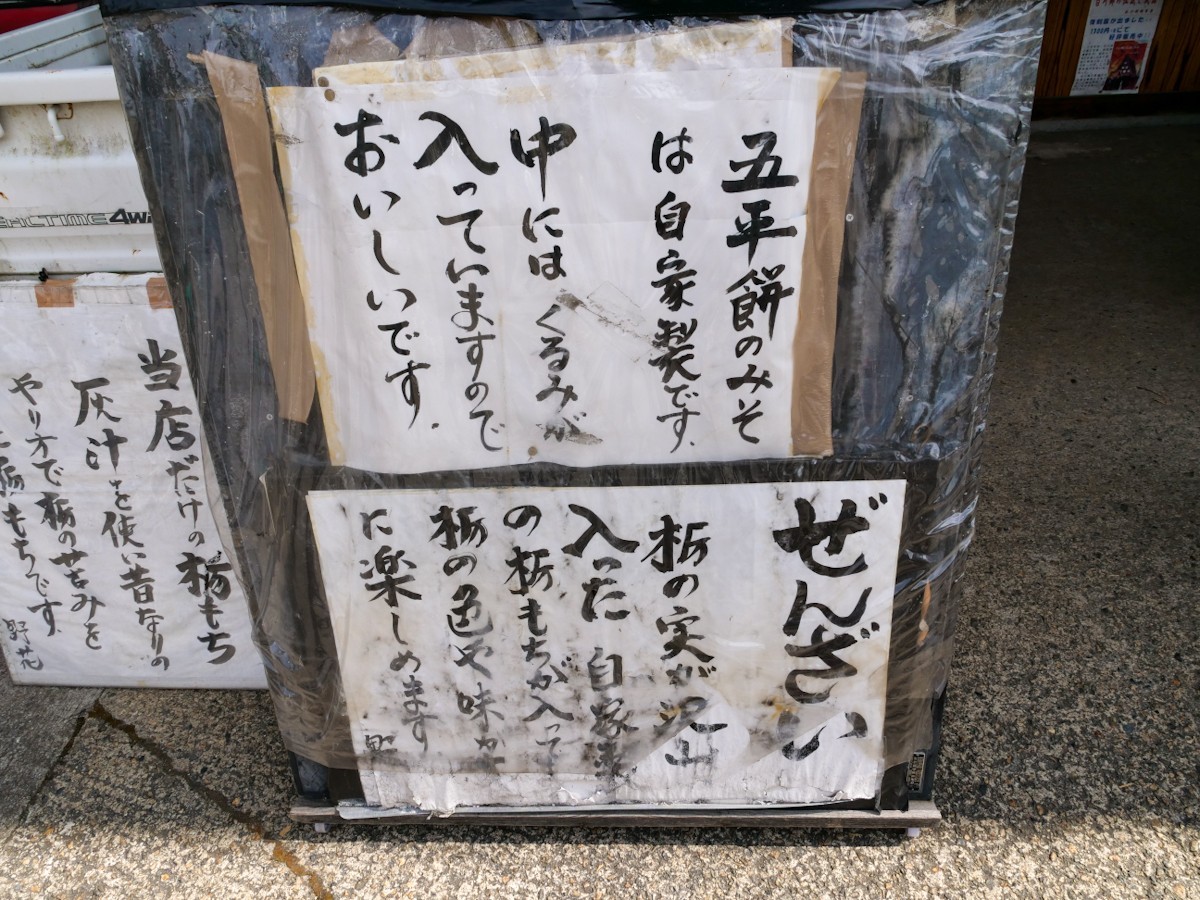 五平餅のみそ
は自家製です.
中にはくるみが
入っていますので
おいしいです.
ぜんざい
栃の実が沢山
入った自家製
の栃もちが入って
栃の色や味が
に楽しめます
当店だけの栃もち
灰汁を使い昔なりの
やり方で栃の甘みを
栃もちです.
野花
4WD